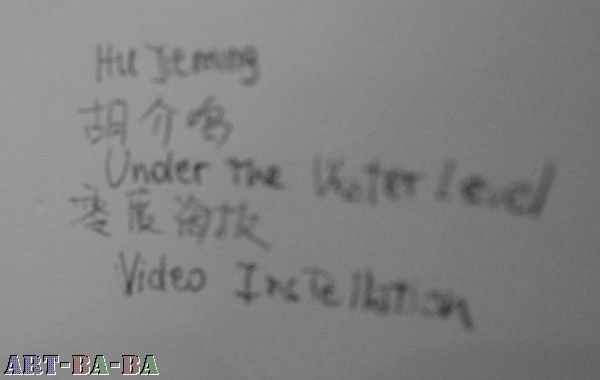 Hu Jieming
胡介鸣
Under The Water Level
零度海拔
Video Installation
ART-BA-BA